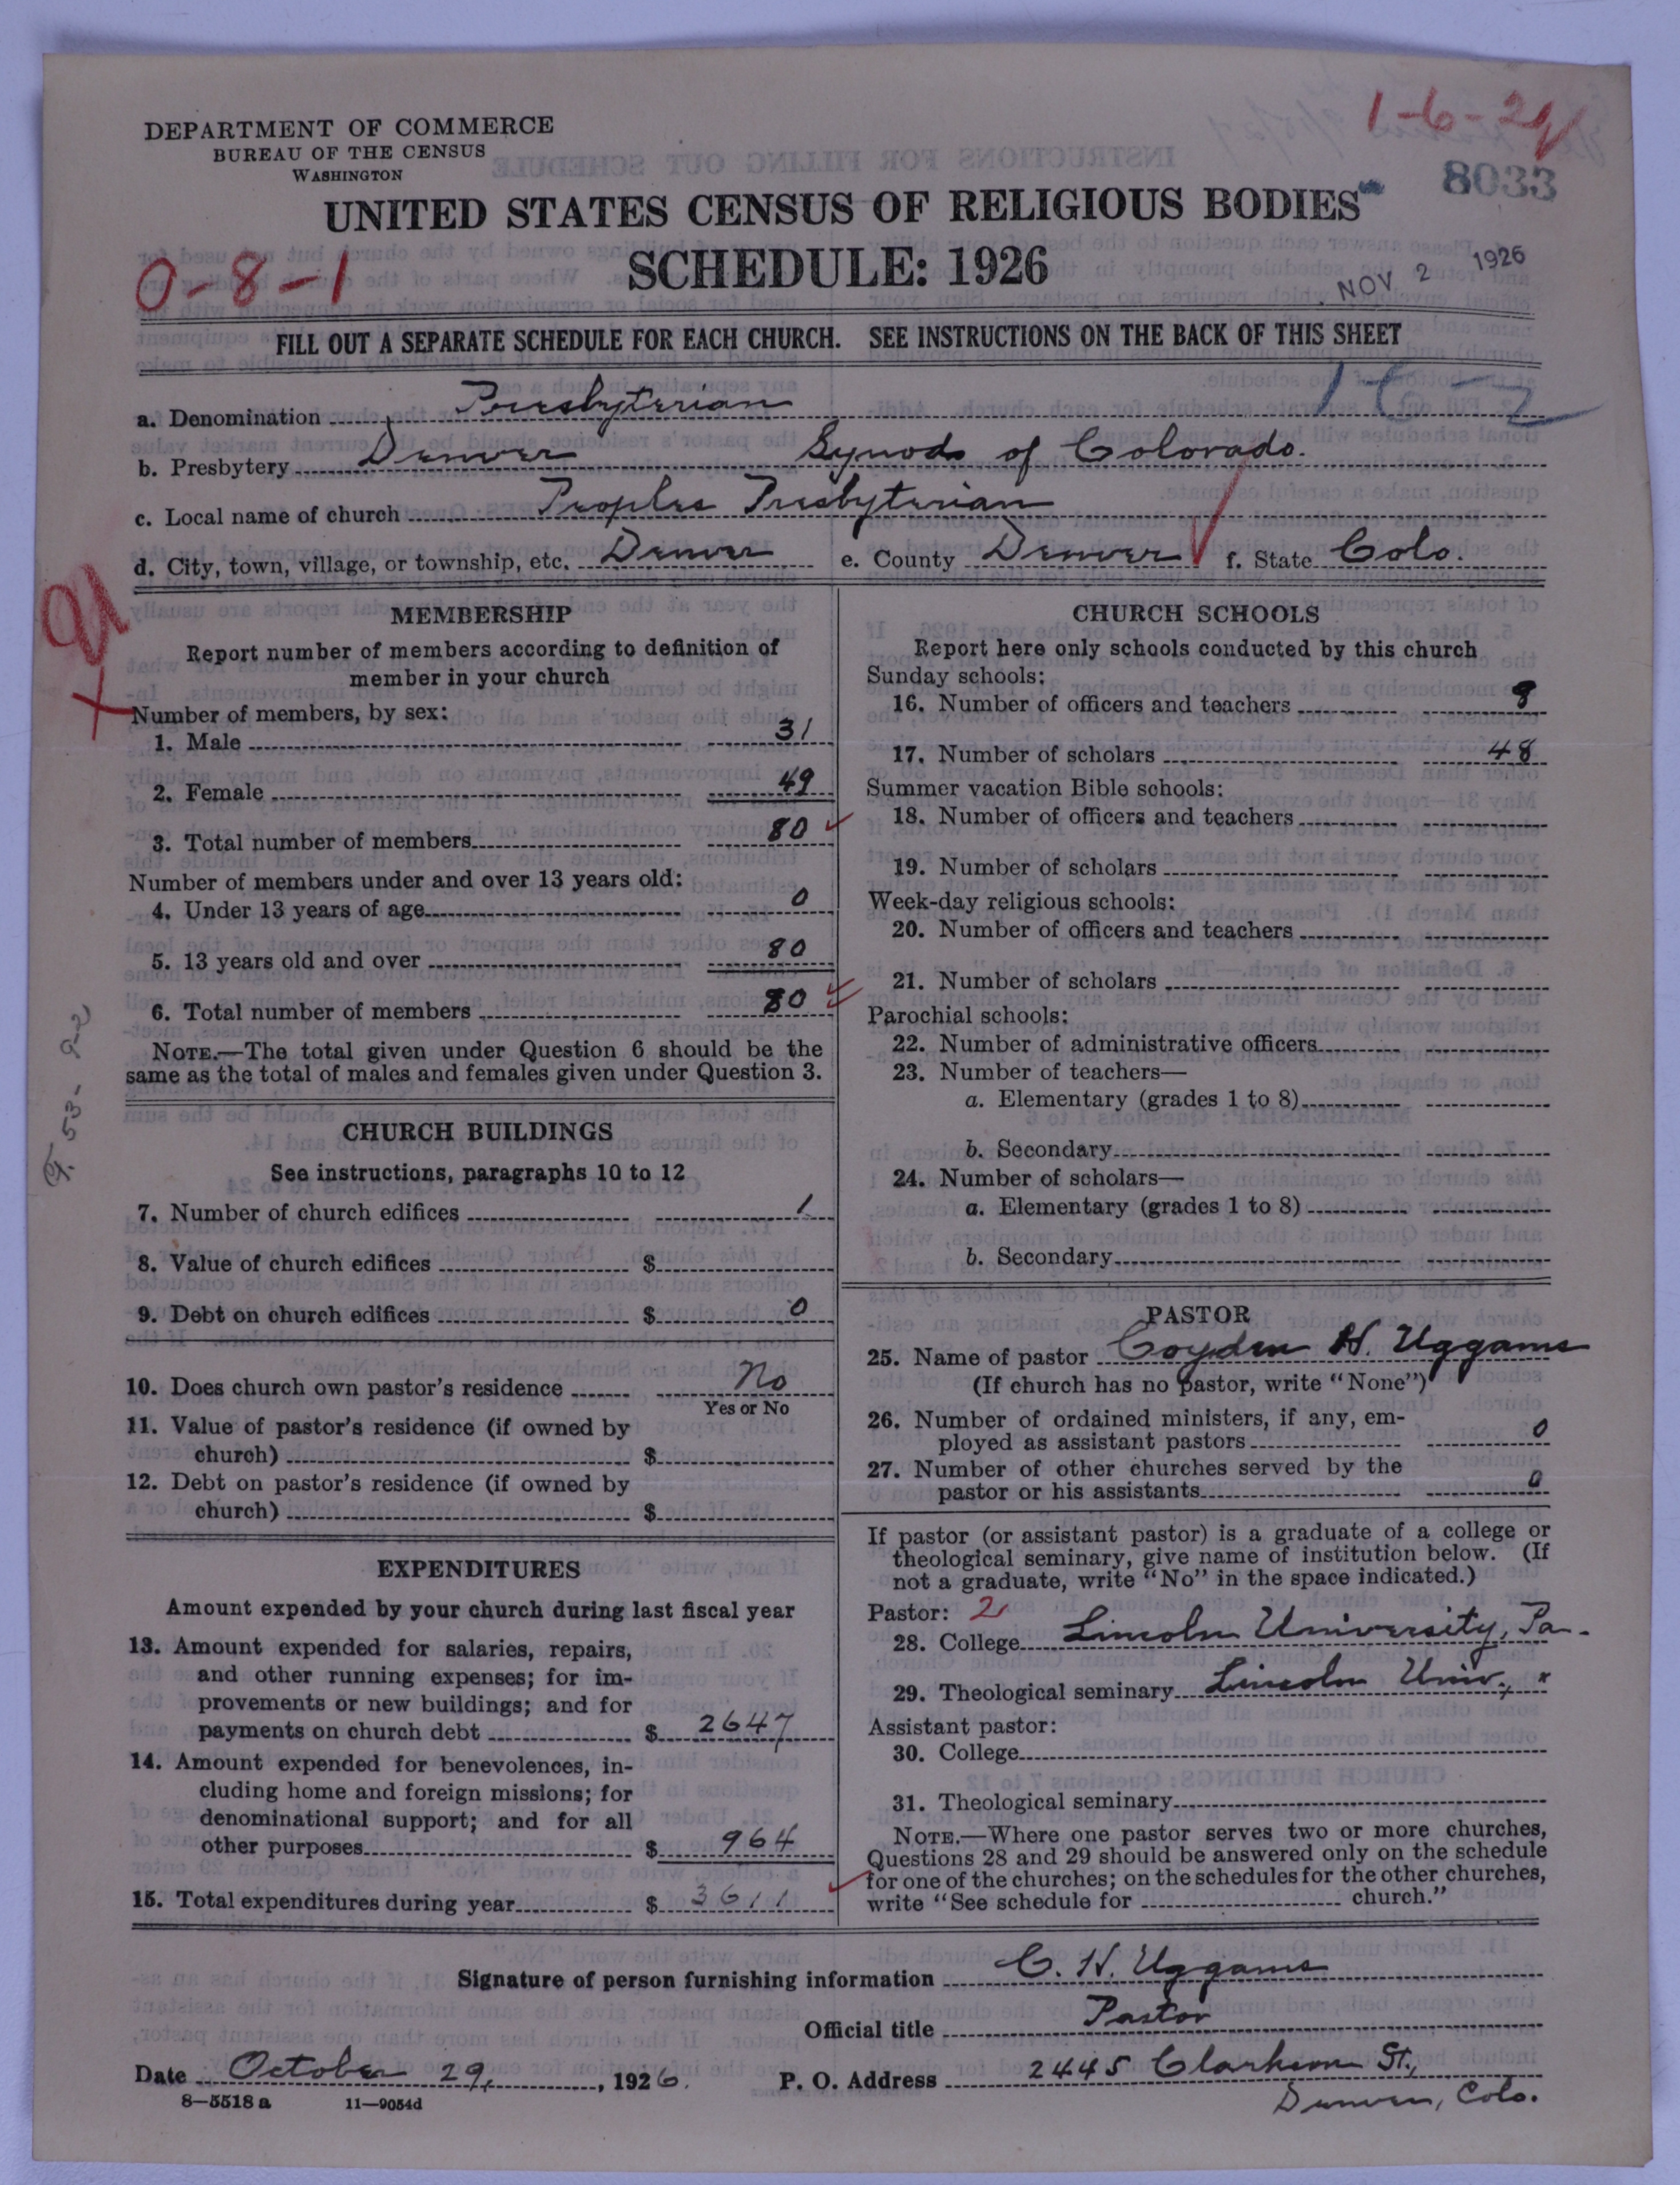 1-6-29
DEPARTMENT OF COMMERCE
BUREAU OF THE CENSUS
WASHINGTON
8033
UNITED STATES CENSUS OF RELIGIOUS BODIES
SCHEDULE: 1926
0-8-1
NOV 2 1926
FILL OUT A SEPARATE SCHEDULE FOR EACH CHURCH. SEE INSTRUCTIONS ON THE BACK OF THIS SHEET
a. Denomination Presbyterian
b. Presbytery Denver Synod of Colorado.
c. Local name of church Peoples Presbyterian
d. City, town, village, or township, etc. Denver e. County Denver f. State Colo.
MEMBERSHIP
Report number of members according to definition of
member in your church
Number of members, by sex:
1. Male 31
2. Female 49
3. Total number of members 80
Number of members under and over 13 years old:
4. Under 13 years of age 0
5. 13 years old and over 80
6. Total number of members 80
NOTE.—The total given under Question 6 should be the
same as the total of males and females given under Question 3.
CHURCH BUILDINGS
See instructions, paragraphs 10 to 12
7. Number of church edifices 1
8. Value of church edifices $
9. Debt on church edifices $ 0
10. Does church own pastor's residence No
Yes or No
11. Value of pastor's residence (if owned by
church) $
12. Debt on pastor's residence (if owned by
church) $
EXPENDITURES
Amount expended by your church during last fiscal year
13. Amount expended for salaries, repairs,
and other running expenses; for im-
provements or new buildings; and for
payments on church debt $ 2647
14. Amount expended for benevolences, in-
cluding home and foreign missions; for
denominational support; and for all
other purposes $ 964
15. Total expenditures during year $ 3611
CHURCH SCHOOLS
Report here only schools conducted by this church
Sunday schools:
16. Number of officers and teachers 8
17. Number of scholars 48
Summer vacation Bible schools:
18. Number of officers and teachers
19. Number of scholars
Week-day religious schools:
20. Number of officers and teachers
21. Number of scholars
Parochial schools:
22. Number of administrative officers
23. Number of teachers—
a. Elementary (grades 1 to 8)
b. Secondary
24. Number of scholars—
a. Elementary (grades 1 to 8)
b. Secondary
PASTOR
25. Name of pastor Coyden H. Uggams
(If church has no pastor, write "None")
26. Number of ordained ministers, if any, em-
ployed as assistant pastors 0
27. Number of other churches served by the
pastor or his assistants 0
If pastor (or assistant pastor) is a graduate of a college or
theological seminary, give name of institution below. (If
not a graduate, write "No" in the space indicated.)
Pastor: 2
28. College Lincoln University, Pa.
29. Theological seminary Lincoln Univ., "
Assistant pastor:
30. College
31. Theological seminary
NOTE.—Where one pastor serves two or more churches,
Questions 28 and 29 should be answered only on the schedule
for one of the churches; on the schedules for the other churches,
write "See schedule for church."
Signature of person furnishing information C. H. Uggams
Official title Pastor
Date October 29, 1926. P. O. Address 2445 Clarkson St.,
Denver, Colo.
8—5518 a 11—9054d